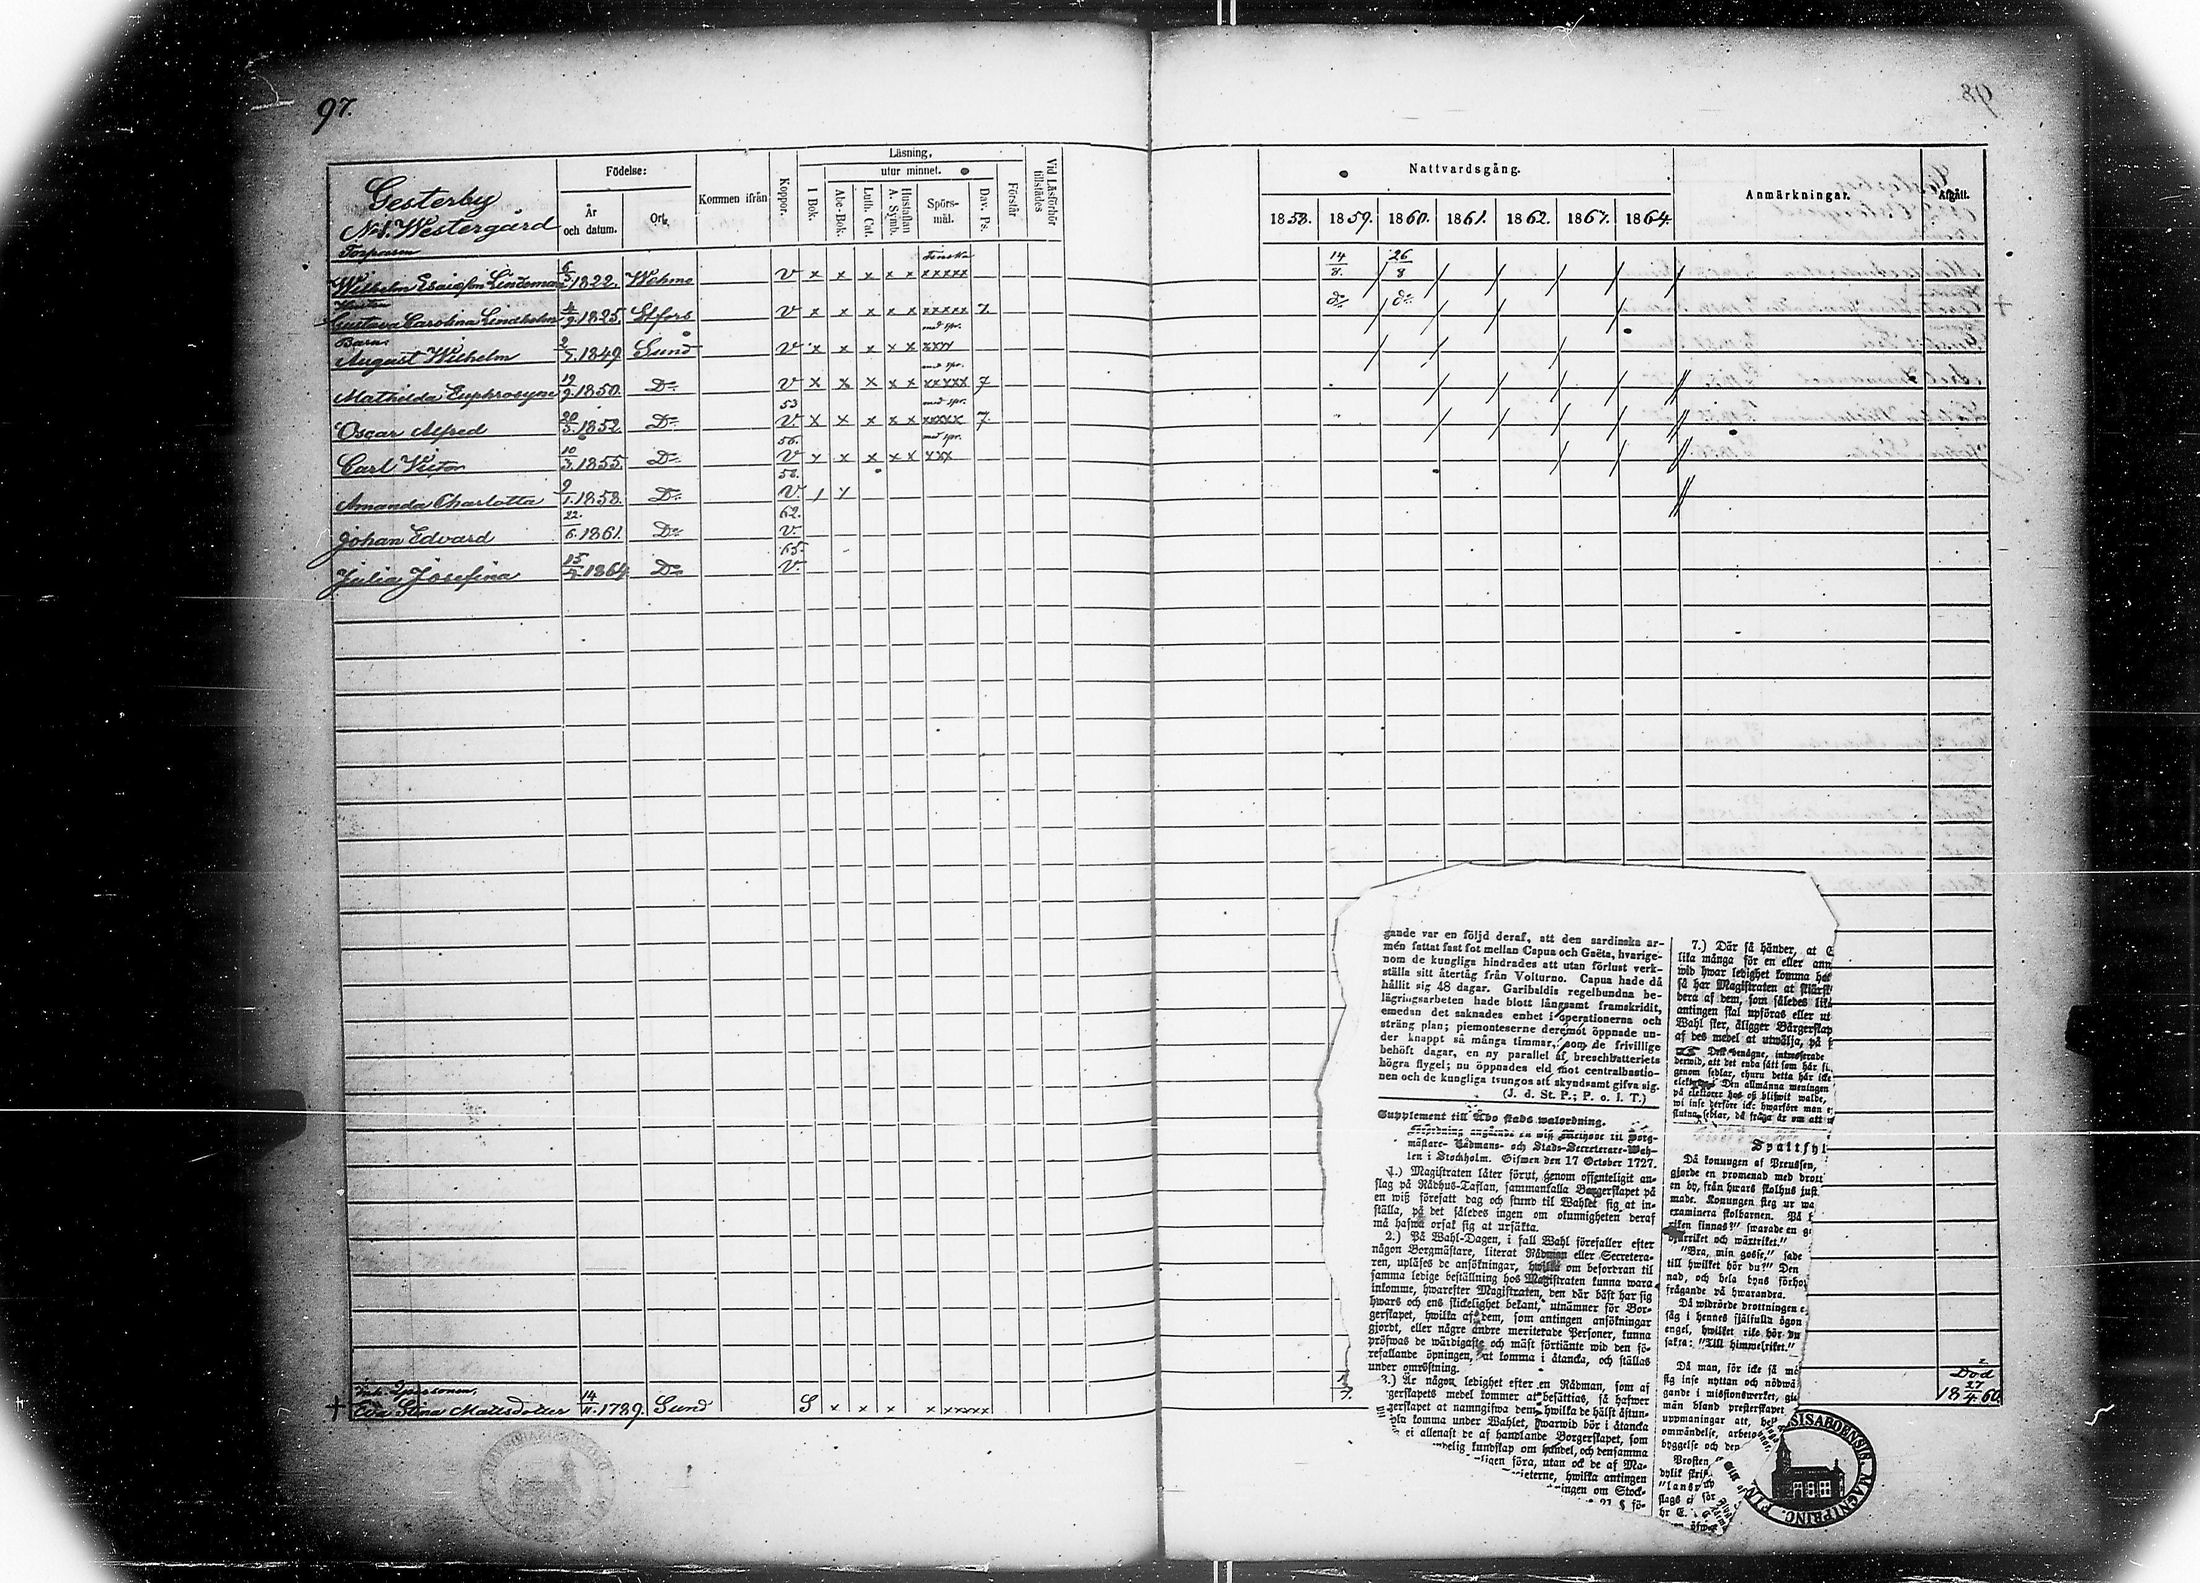 97.
98.
Gesterby
No 1. Westergård
Födelse:
År och datum.
Ort.
Kommen ifrån
Koppor.
Läsning,
utur minnet.
I Bok.
Abc-Bok.
Luth. Cat.
Hustaflan
A. Symb.
Spörs-
mål.
Dav. Ps.
Förstår
Vid Läsförhör
tillstädes
Nattvardsgång.
1858. 1859. 1860. 1861. 1862. 1867. 1864.
Anmärkningar.
Afgått.
Torparen
Finska
Wilhelm Esaiasson Lindeman 6/5 1822. Wehmo v x x x x x xxxxx 14/8. 26/8
Hustru
Gustava Carolina Lindholm 4/9 1825. Effors v x x x x x xxxxx 7. do do
Barn:
med spr.
August Wilhelm 2/5 1849. Sund v x x x x x xxx
med spr.
Mathilda Euphrosyne 19/9 1850. Do v x x x x x xxxxx 7
53 med spr.
Oscar Alfred 20/5 1852 Do v. x x x x x xxxxx 7.
56. med spr.
Carl Victor 10/3 1855. Do v x x x x x xxx
58.
Amanda Charlotta 9/1 1858. Do v.
62.
Johan Edvard 22/6 1861. Do v.
65.
Julia Josefina 15/7 1864 Do v.
Eva Stina Mattsdotter 14/11. 1789. Sund S x x x x xxxxx
Död
18 27/4 60.
gande var en följd deraf, att den sardinska ar-
mén fattat fast fot mellan Capua och Gaëta, hvarige-
nom de kungliga hindrades att utan förlust verk-
ställa sitt återtåg från Volturno. Capua hade då
hållit sig 48 dagar. Garibaldis regelbundna be-
lägringsarbeten hade blott långsamt framskridit,
emedan det saknades enhet i operationerna och
sträng plan; piemonteserne deremot öppnade un-
der knappt så många timmar, som de frivillige
behöft dagar, en ny parallel af breschbatteriets
högra flygel; nu öppnades eld mot centralbastio-
nen och de kungliga tvungos att skyndsamt gifva sig.
(J. d. St. P.; P. o. I. T.)
Supplement till Åbo stads walordning.
Förordning angående en wiß Methode til Borg-
mästare- Rådmans- och Stads-Secreterare-Wah-
len i Stockholm. Gifwen den 17 October 1727.
1.) Magistraten låter förut, genom offenteligit an-
slag på Rådhus-Taflan, sammankalla Borgerskapet på
en wiß föresatt dag och stund til Wahlet sig at in-
ställa, på det således ingen om okunnigheten deraf
må hafwa orsak sig at ursäkta.
2.) På Wahl-Dagen, i fall Wahl förefaller efter
någon Borgmästare, literat Rådman eller Secretera-
ren, upläses de ansökningar, hwilka om befordran til
samma ledige beställning hos Magistraten kunna wara
inkomne, hwarefter Magistraten, den där bäst har sig
hwars och ens skickelighet bekant, utnämner för Bor-
gerskapet, hwilka af dem, som antingen ansökningar
gjordt, eller någre andre meriterade Personer, kunna
pröfwas de wärdigaste och mäst förtiänte wid den fö-
refallande öpningen, at komma i åtancka, och ställas
under omröstning.
3.) Är någon ledighet efter en Rådman, som af
gerskapets medel kommer at besättias, så hafwer
gerskapet at namngifwa dem, hwilka de hälst åstun-
komma under Wahlet, hwarwid bör i åtancka
ei allenast de af handlande Borgerskapet, som
kundskap om handel, och densamma
föra, utan ock de af Ma-
hwilka antingen
om Stock-
§ fö-
7.) Där så händer, at
lika många för en eller ann
wid hwar ledighet komma
så har Magistraten at
bera af dem, som således
antingen skal upföras eller ut
Wahl sker, åligger Bårgerskap
af des medel at utwälja, på
genom sedlar, ehuru detta här icke
Den allmänna meningen
wi inse derföre icke hwarföre man
Spaltfyl
Då konungen af Preussen,
gjorde en promenad med drott
en by, från hwars skolhus just
made. Konungen steg ur wa
examinera skolbarnen. På
riken finnas?" swarade en
djurriket och wäxtriket."
"Bra, min gosse," sade
till hwilket hör du?" Den
nad, och hela byns
frågande på hwarandra.
Då widrörde drottningen
såg i hennes själfulla ögon
engel, hwilket rike hör du
sakta: "Till himmelriket."
Då man, för icke så
sig inse nyttan och nödwä
gande i missionswerket,
män bland presterskapet
uppmaningar att,
omwändelse, arbeta
byggelse och den
Prosten
dylik skrif
SISABOENSIS. MAGNIPRINC. FIN